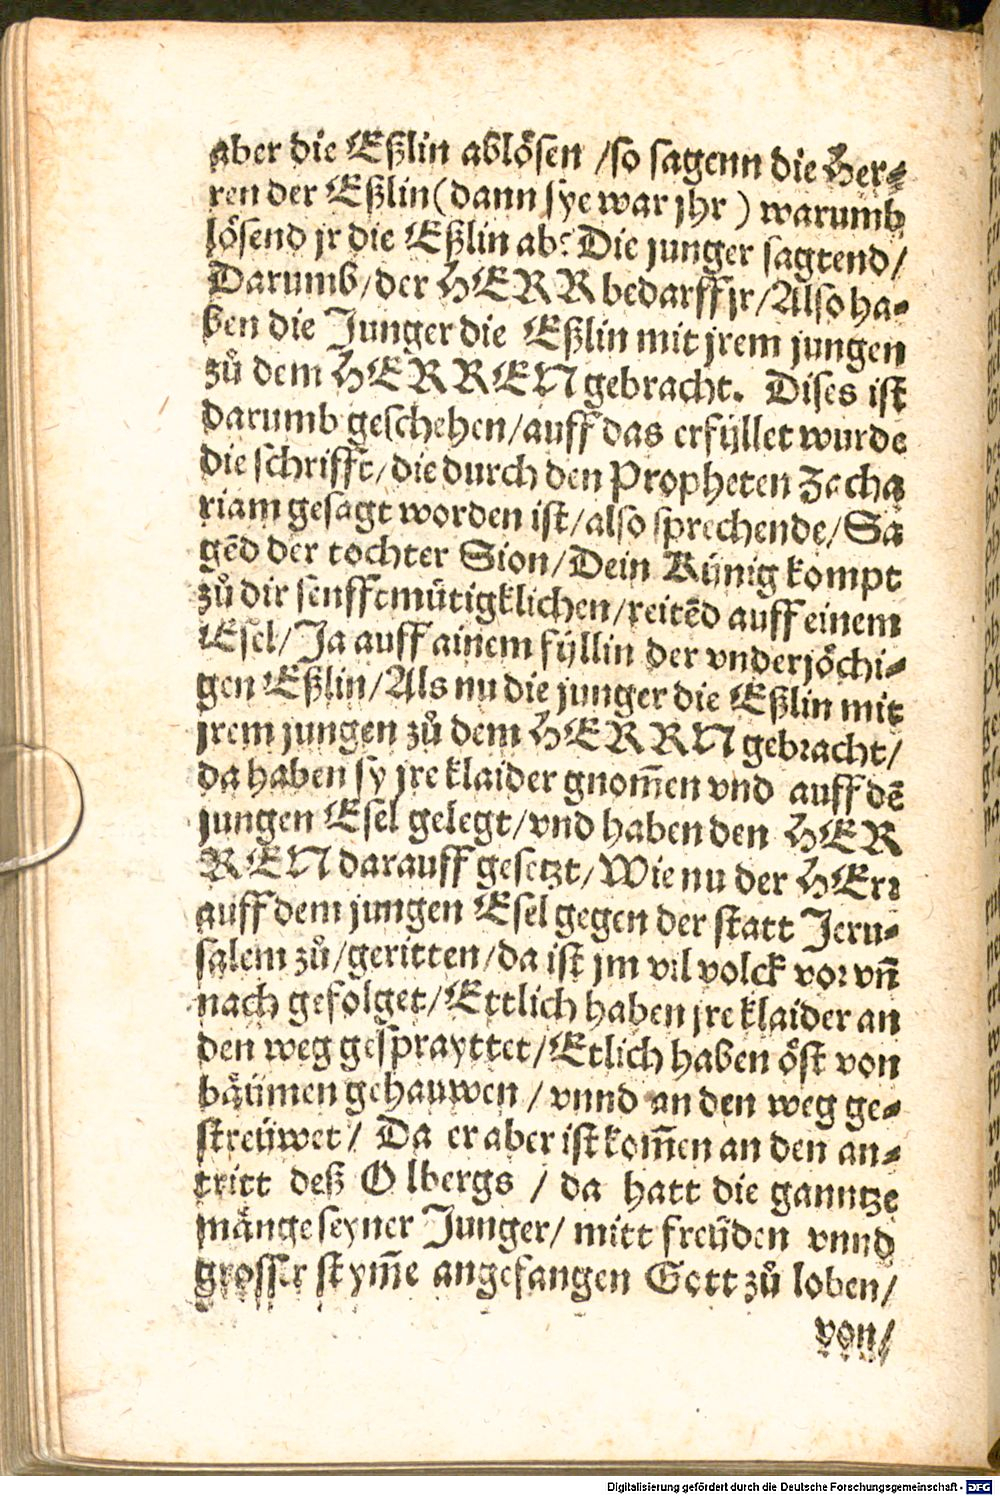 aber die Eßlin ablösen /so sagenn die Her⸗
ren der Eßlin(dann sye war jhr ) warumb
lösend jr die Eßlin ab? Die junger sagtend/
Darumb/der HERR bedarff jr/Also ha⸗
ben die Junger die Eßlin mit jrem jungen
zů dem HERREN gebracht. Dises ist
darumb geschehen/auff das erfÿllet wurde
die schrifft/die durch den Propheten Zacha
riam gesagt worden ist/also sprechende/Sa
gẽd der tochter Sion/Dein Künig kompt
zů dir senfftmütigklichen/reitẽd auff einem
Esel/Ja auff ainem fÿllin der vnderjöchi⸗
gen Eßlin/Als nu die junger die Eßlin mit
jrem jungen zů dem HERRN gebracht/
da haben sy jre klaider gnom̃en vnd auff dẽ
jungen Esel gelegt/vnd haben den HER
REN darauff gesetzt/Wie nu der HErr
auff dem jungen Esel gegen der statt Jeru⸗
salem zů/geritten/da ist jm vil volck vor vñ
nach gefolget/Ettlich haben jre klaider an
den weg gesprayttet/Etlich haben öst von
bäumen gehauwen / vnnd an den weg ge⸗
streüwet/ Da er aber ist kom̃en an den an⸗
tritt deß Olbergs / da hatt die ganntze
mänge seyner Junger/ mitt freüden vnnd
grosser stym̃e angefangen Gott zů loben/
von/
Digitalisierung gefördert durch die Deutsche Forschungsgemeinschaft - DFG